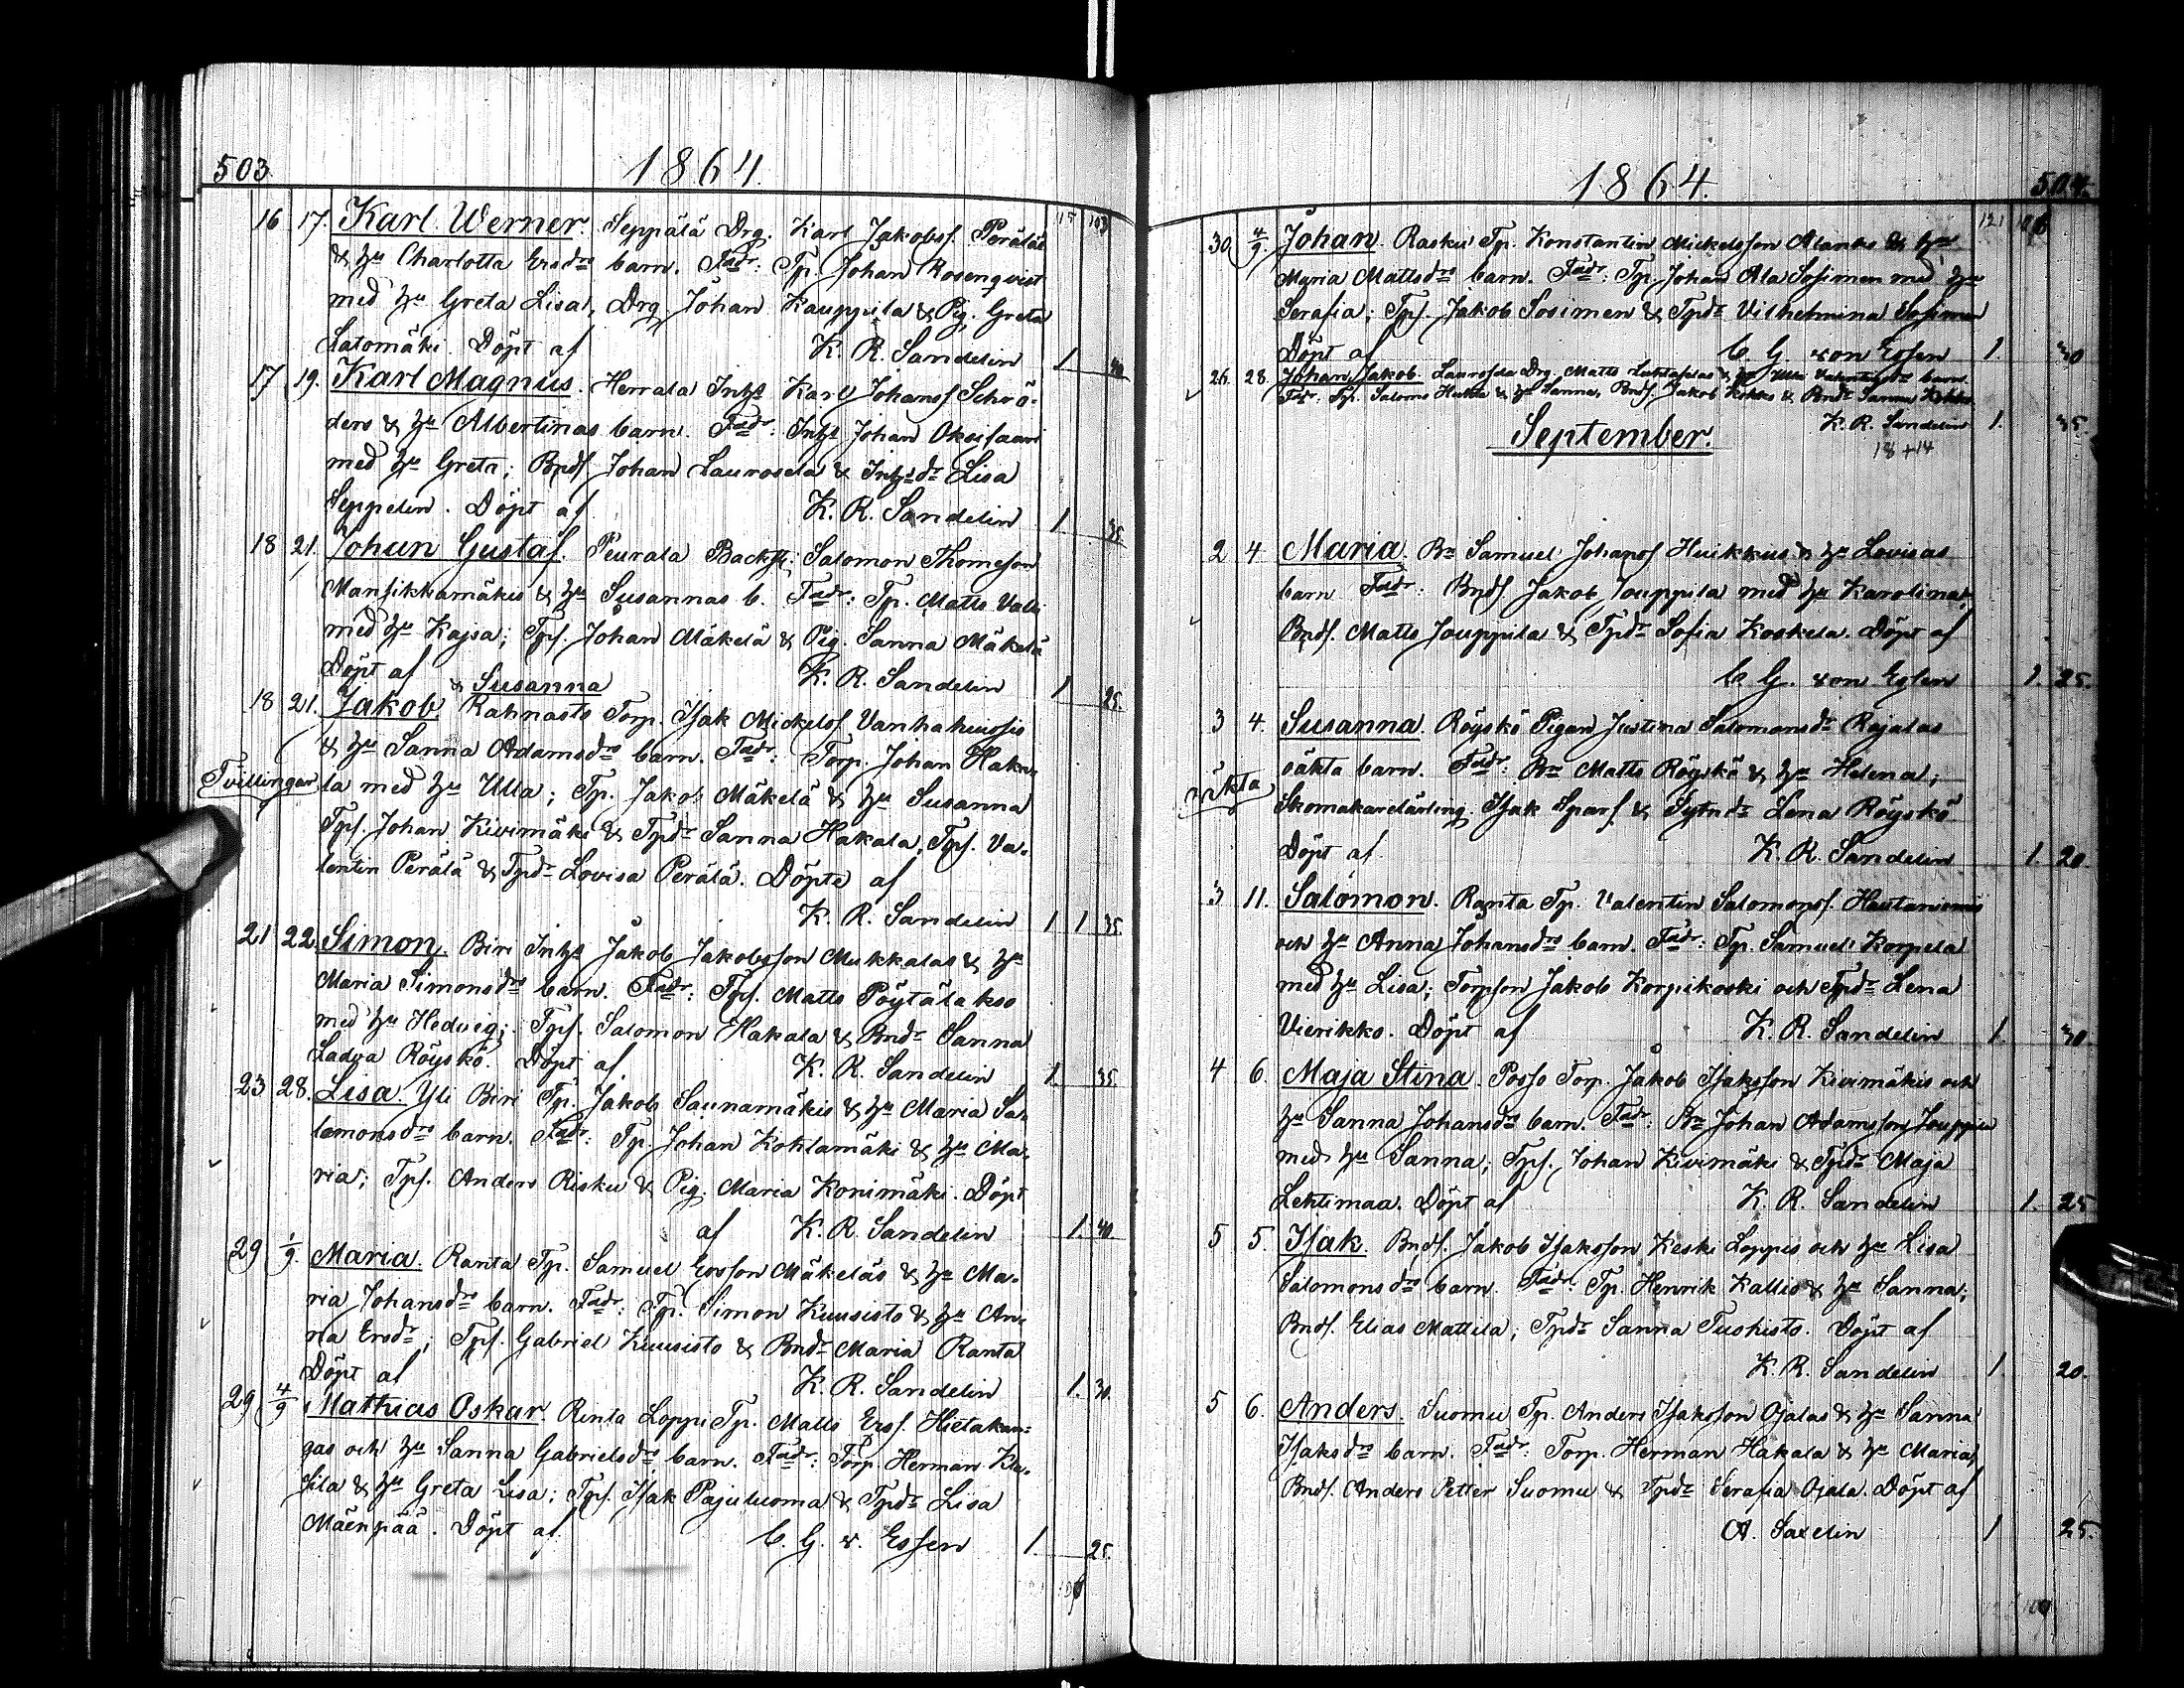 503. 1864.
115 103
16 17. Karl Werner. Seppälä Drg. Karl Jakobsf. Peräläs
& hu Charlotta Ersdrs barn. Fadr: Tp. Johan Rosenqvist
med hu Greta Lisa, Drg Johan Kauppila & Pig. Greta
Latomäki. Döpt af K. R. Sandelin 1 40
17 19. Karl Magnus. Herrala Inhs Karl Johansf Schrö-
ders & hu Albertinas barn. Fadr: Inhs Johan Oksisaari
med hu Greta; Bndf Johan Laurosela & Inhsdr Lisa
Seppelin. Döpt af K. R. Sandelin 1 35
18 21. Johan Gustaf. Peurala Backst: Salomon Thomeson
Mansikkamäkis & hu Susannas b. Fadr: Tp. Matts Valli
med hu Kajsa; Tpf. Johan Mäkelä & Pig. Sanna Mäkelä
Döpt af K. R. Sandelin 1 25.
& Susanna
18 21. Jakob. Rahnasto Torp. Isak Mickelsf Vanhahuissis
& hu Sanna Adamsdrs barn. Fadr: Torp. Johan Haka-
Tvillingar la med hu Ulla; Tp. Jakob Mäkelä & hu Susanna
Tpf. Johan Kivimäki & Tpdr Sanna Hakala, Tpf. Va-
lentin Perälä & Tpdr Lovisa Perälä. Döpte af
K. R. Sandelin 1 1 35
21 22. Simon. Biri Inhs Jakob Jakobsson Mukkalas & hu
Maria Simonsdrs barn. Fadr: Tpf. Matts Pöytälakso
med hu Hedvig; Tpf. Salomon Hakala & Bndr Sanna
Ladva Röyskö. Döpt af K. R. Sandelin 1. 35
23 28. Lisa. Yli Biri Tp. Jakob Saunamäkis & hu Maria Sa-
lomonsdrs barn. Fadr: Tp. Johan Kohlamäki & hu Ma-
ria; Tpf. Anders Risku & Pig. Maria Konimäki. Döpt
af K. R. Sandelin 1. 40
29 1/9. Maria. Ranta Tp. Samuel Ersson Mäkeläs & hu Ma-
ria Johansdrs barn. Fadr: Tp. Simon Kuusisto & hu An-
na Ersdr; Tpf. Gabriel Kuusisto & Bndr Maria Ranta
Döpt af K. R. Sandelin 1. 30.
29 4/9 Mathias Oskar. Rinta Loppi Tp. Matts Ersf. Hietakan-
gas och hu Sanna Gabrielsdrs barn. Fadr: Torp. Herman Kla-
sila & hu Greta Lisa; Tpf. Isak Pajuluoma & Tpdr Lisa
Mäenpää. Döpt af C. G. v. Essen 1. 25.
1864. 504.
121
30. 4/9. Johan. Rasku Tp. Konstantin Mickelsson Alanks & hus
Maria Mattsdrs barn. Fadr: Tp. Johan Ala Sosimen med hu
Serafia; Tpf. Jakob Sosimen & Tpdr Vilhelmina Sosimen
Döpt af C. G. von Essen 1. 30
26. 28. Johan Jakob. Laurosela Drg. Matts & hu Ulla barn.
Fadr: Tp. Salomo & hu Sanna, Bndf. Jakob Kokko & Bndr Sanna Kokko
K. R. Sandelin 1. 35.
September.
18 + 14
2 4 Maria. Br Samuel Johansf Huikkus & hu Lovisas
barn Fadr: Bndf Jakob Jouppila med hu Karolina;
Bndf. Matts Jouppila & Tpdr Sofia Koskela. Döpt af
C. G. von Essen 1. 25.
3 4. Susanna. Röyskö Pigan Justina Salomonsdr Rajalas
oäkta barn. Fadr: Br Matts Röyskö & hu Helena;
oäkta Skomakarelärling Isak Sparf & Sytndr Lena Röyskö
Döpt af K. R. Sandelin 1. 20
3 11. Salomon. Ranta Tp. Valentin Salomonsf. Hautaniemis
och hu Anna Johansdrs barn. Fadr: Tp. Samuel Korpela
med hu Lisa; Torpson Jakob Korpikoski och Tpdr Lena
Vierikko. Döpt af K. R. Sandelin 1. 30.
4 6. Maja Stina. Posso Torp. Jakob Isaksson Kivimäkis och
hu Sanna Johansdrs barn. Fadr: Br Johan Adamsson Jouppila
med hu Sanna; Tpf. Johan Kivimäki & Tpdr Maja
Lehtimaa. Döpt af K. R. Sandelin 1. 25
5 5. Isak. Bndf. Jakob Isaksson Keski Loppis och hu Lisa
Salomonsdrs barn. Fadr: Tp. Henrik Kallio & hu Sanna;
Bndf. Elias Mattila; Tpdr Sanna Tuohisto. Döpt af
K. R. Sandelin 1. 20.
5 6. Anders. Suomu Tp. Anders Isaksson Ojalas & hu Sanna
Isaksdrs barn. Fadr: Torp. Herman Hakala & hu Maria,
Bndf. Anders Petter Suomu & Tpdr Serafia Ojala. Döpt af
A. Saxelin 1 25.